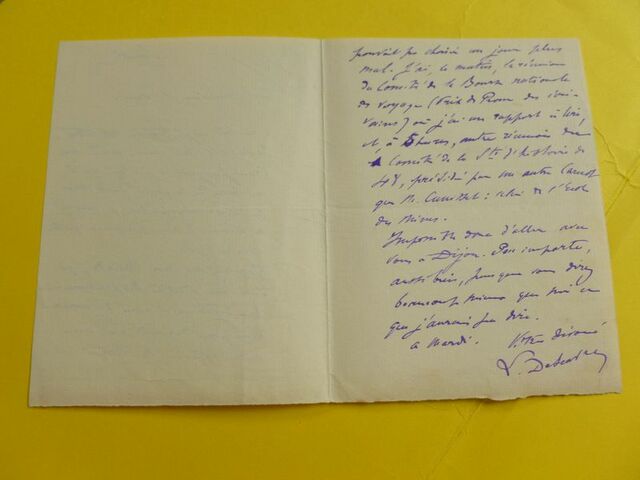 pouvait pas choisir un jour plus
mal. J'ai, le matin, la réunion
du Comité de la Bourse nationale
de voyage (Prix de Rome des écri-
vains) où j'ai un rapport à lire,
et, à 5 heures, autre réunion du
Comité de la Sté d'histoire de
48, présidé par un autre Carnot
que M. : celui de l'Ecole
des Mines.
Impossible donc d'aller avec
vous à Dijon. Peu importe,
aussi bien, puisque vous direz
beaucoup mieux que moi ce
que j'aurais pu dire.
à mardi. Votre dévoué
L. Descaves